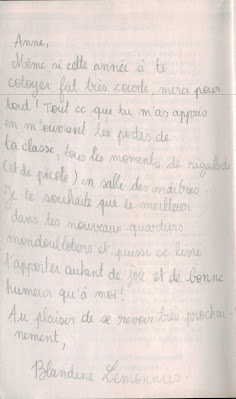 Anne,
Même si cette année à te
cotoyer fût très courte, merci pour
tout ! Tout ce que tu m'as appris
en m'ouvrant les portes de
ta classe, tous les moments de rigolade
(et de picole) en salle des maîtres.
Je te souhaite que le meilleur
dans tes nouveaux quartiers
mondoubleliens et puisse ce livre
t'apporter autant de joie et de bonne
humeur qu'à moi !
Au plaisir de se revoir très prochai-
nement,
Blandine Lemonnier